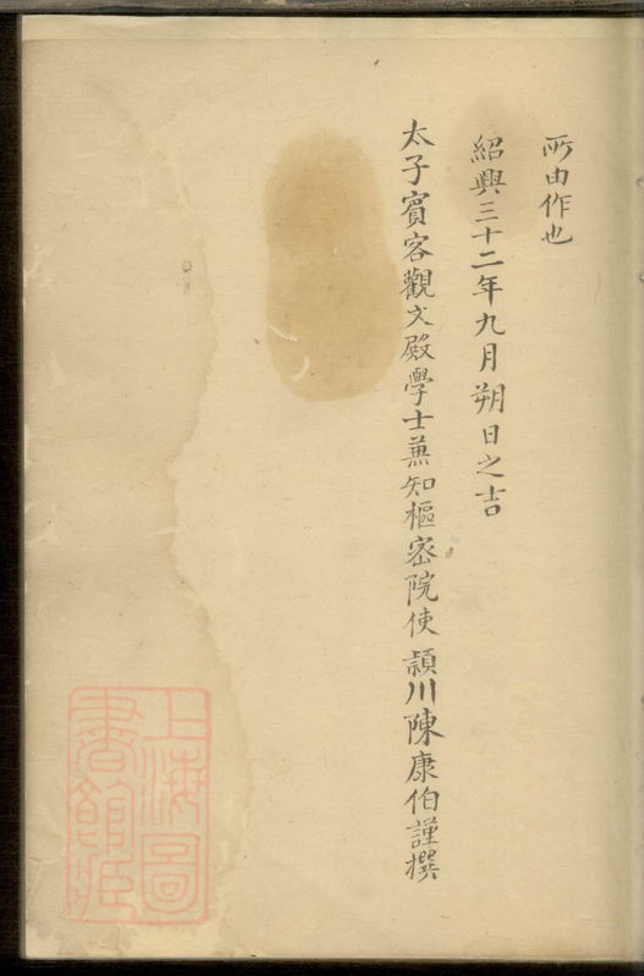 所由作也
紹興三十二年九月朔日之吉
太子賓客觀文殿學士兼知樞密院使潁川陳康伯謹撰
上海圖
書館藏